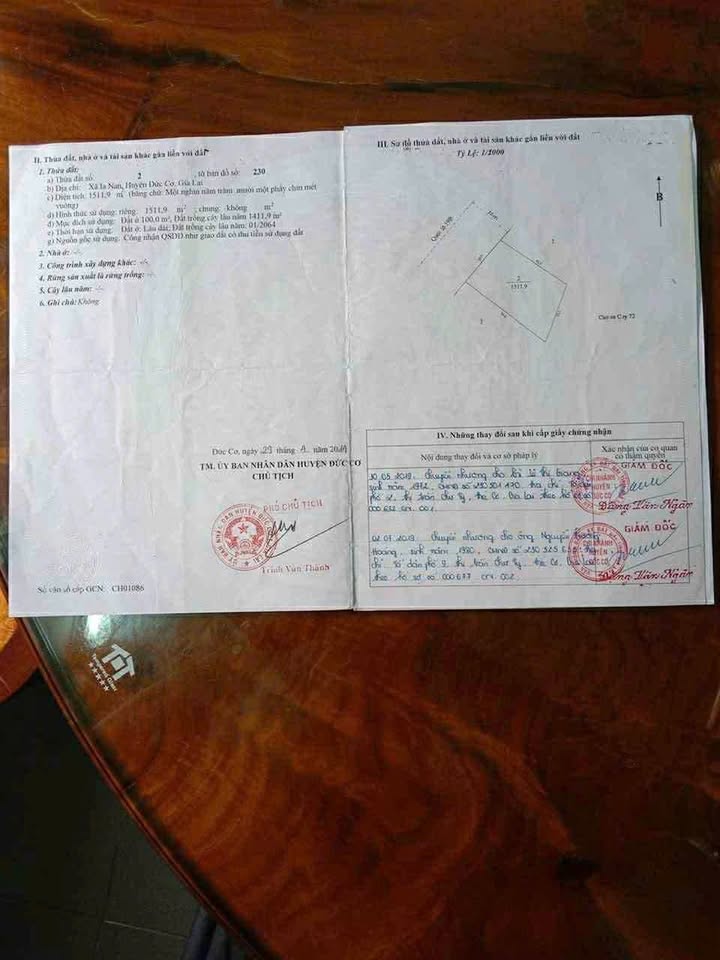 II. Thửa đất, nhà ở và tài sản khác gắn liền với đất
1. Thửa đất:
a) Thửa đất số: 2 , tờ bản đồ số: 230
b) Địa chỉ: Xã Ia Nan, Huyện Đức Cơ, Gia Lai
c) Diện tích: 1511,9 m² (bằng chữ: Một nghìn năm trăm mười một phẩy chín mét
vuông)
d) Hình thức sử dụng: riêng: 1511,9 m²; chung: không m²
đ) Mục đích sử dụng: Đất ở 100,0 m²; Đất trồng cây lâu năm 1411,9 m²
e) Thời hạn sử dụng: Đất ở: Lâu dài; Đất trồng cây lâu năm: 01/2064
g) Nguồn gốc sử dụng: Công nhận QSDĐ như giao đất có thu tiền sử dụng đất
2. Nhà ở: -/-
3. Công trình xây dựng khác: -/-
4. Rừng sản xuất là rừng trồng: -/-
5. Cây lâu năm: -/-
6. Ghi chú: Không
Đức Cơ, ngày 23 tháng năm
TM. ỦY BAN NHÂN DÂN HUYỆN ĐỨC CƠ
CHỦ TỊCH
PHÓ CHỦ TỊCH
Trịnh Văn Thành
Số vào sổ cấp GCN: CH01086
III. Sơ đồ thửa đất, nhà ở và tài sản khác gắn liền với đất
Tỷ Lệ: 1/2000
B
Quốc lộ 19B
Hẻm
1
2
1511,9
3
Cao su Cty 72
IV. Những thay đổi sau khi cấp giấy chứng nhận
Nội dung thay đổi và cơ sở pháp lý
Xác nhận của cơ quan
có thẩm quyền
30.05.2019. chuyển nhượng cho bà thị trang
sinh năm: 1972, cmnd số 230 501 470, địa chỉ:
phố 2, thị trấn Chư Ty, Đức Cơ, Gia Lai theo hồ sơ số
000632. CN. 001
GIÁM ĐỐC
CHI NHÁNH
HUYỆN
ĐỨC CƠ
Đặng Văn Ngân
02.07.2019. chuyển nhượng cho ông Nguyễn Hoàng
Hoàng, sinh năm: 1980, cmnd số: 230 525
chỉ: Tổ dân phố 9, thị trấn Chư Ty, Đức Cơ, Gia Lai
theo hồ sơ số 000677. CN. 002
GIÁM ĐỐC
CHI NHÁNH
HUYỆN
ĐỨC CƠ
Đặng Văn Ngân
Tempered Glass